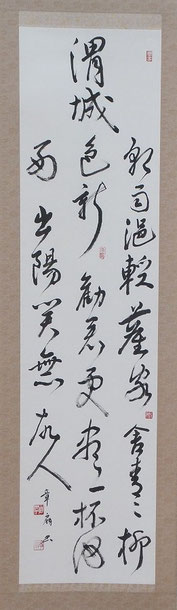 渭城
朝雨浥輕塵客舍青々柳
色新勸君更盡一杯酒
西出陽關無故人